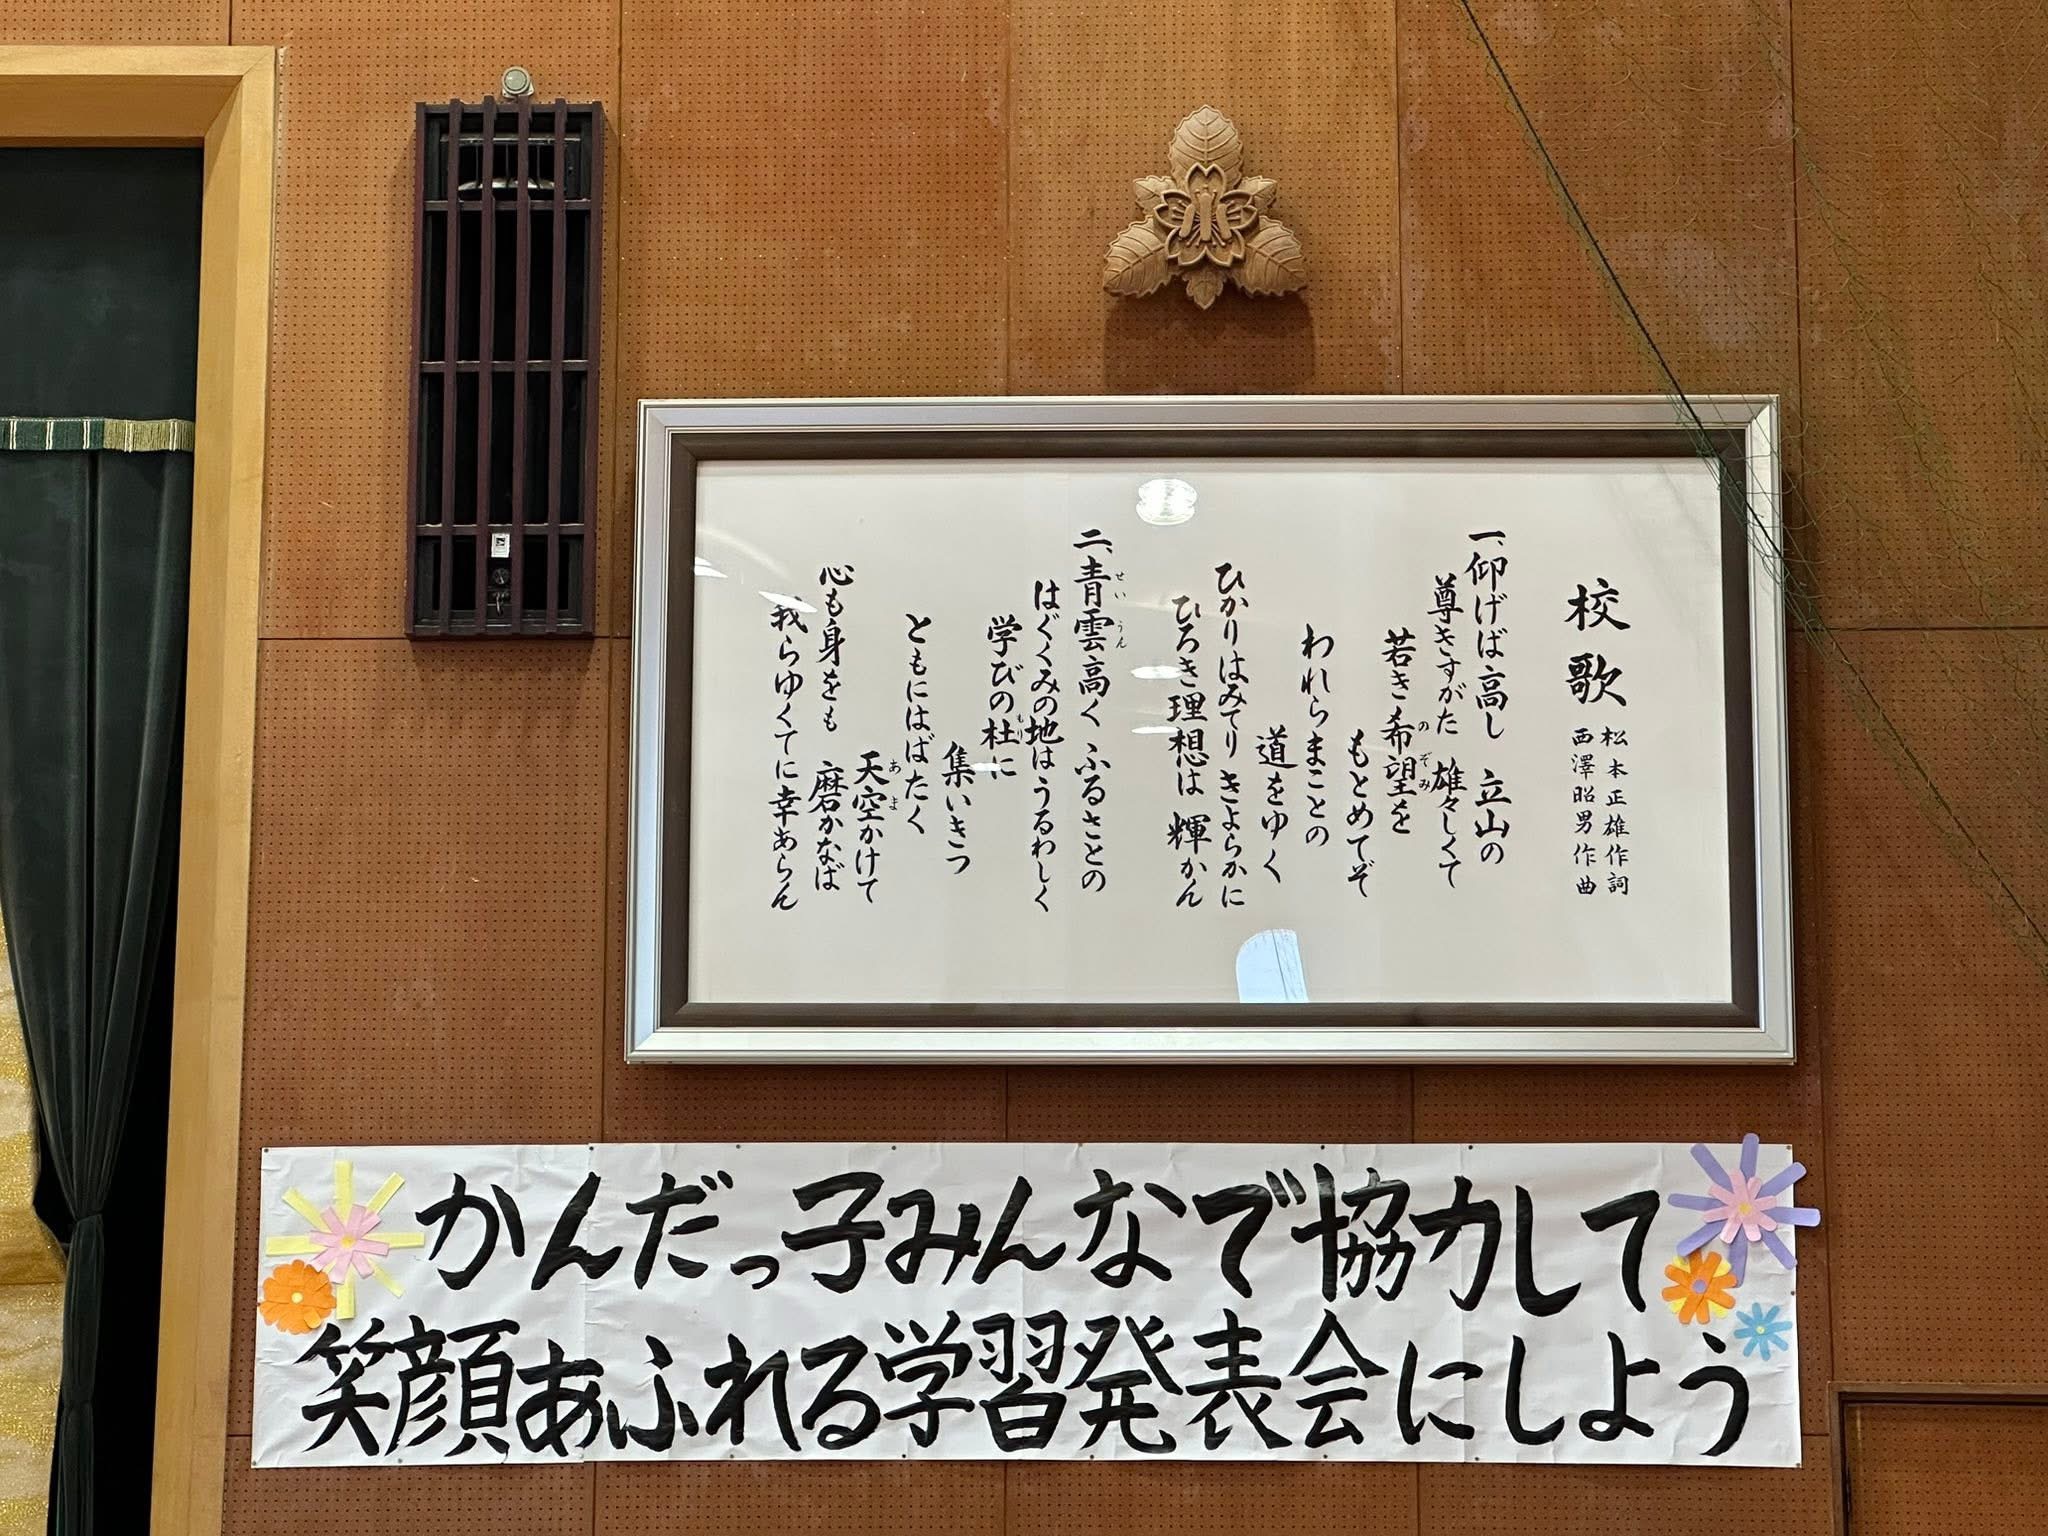 校歌
松本正雄作詞
西澤昭男作曲
一、仰げば高し 立山の
尊きすがた 雄々しくて
若き希望を
のぞみ
もとめてぞ
われらまことの
道をゆく
ひかりはみてり きよらかに
ひろき理想は 輝かん
二、青雲高く ふるさとの
せいうん
はぐくみの地はうるわしく
学びの杜に
もり
集いきつ
ともにはばたく
天空かけて
あま
心も身をも 磨かなば
我らゆくてに幸あらん
かんだっ子みんなで協力して
笑顔あふれる学習発表会にしよう